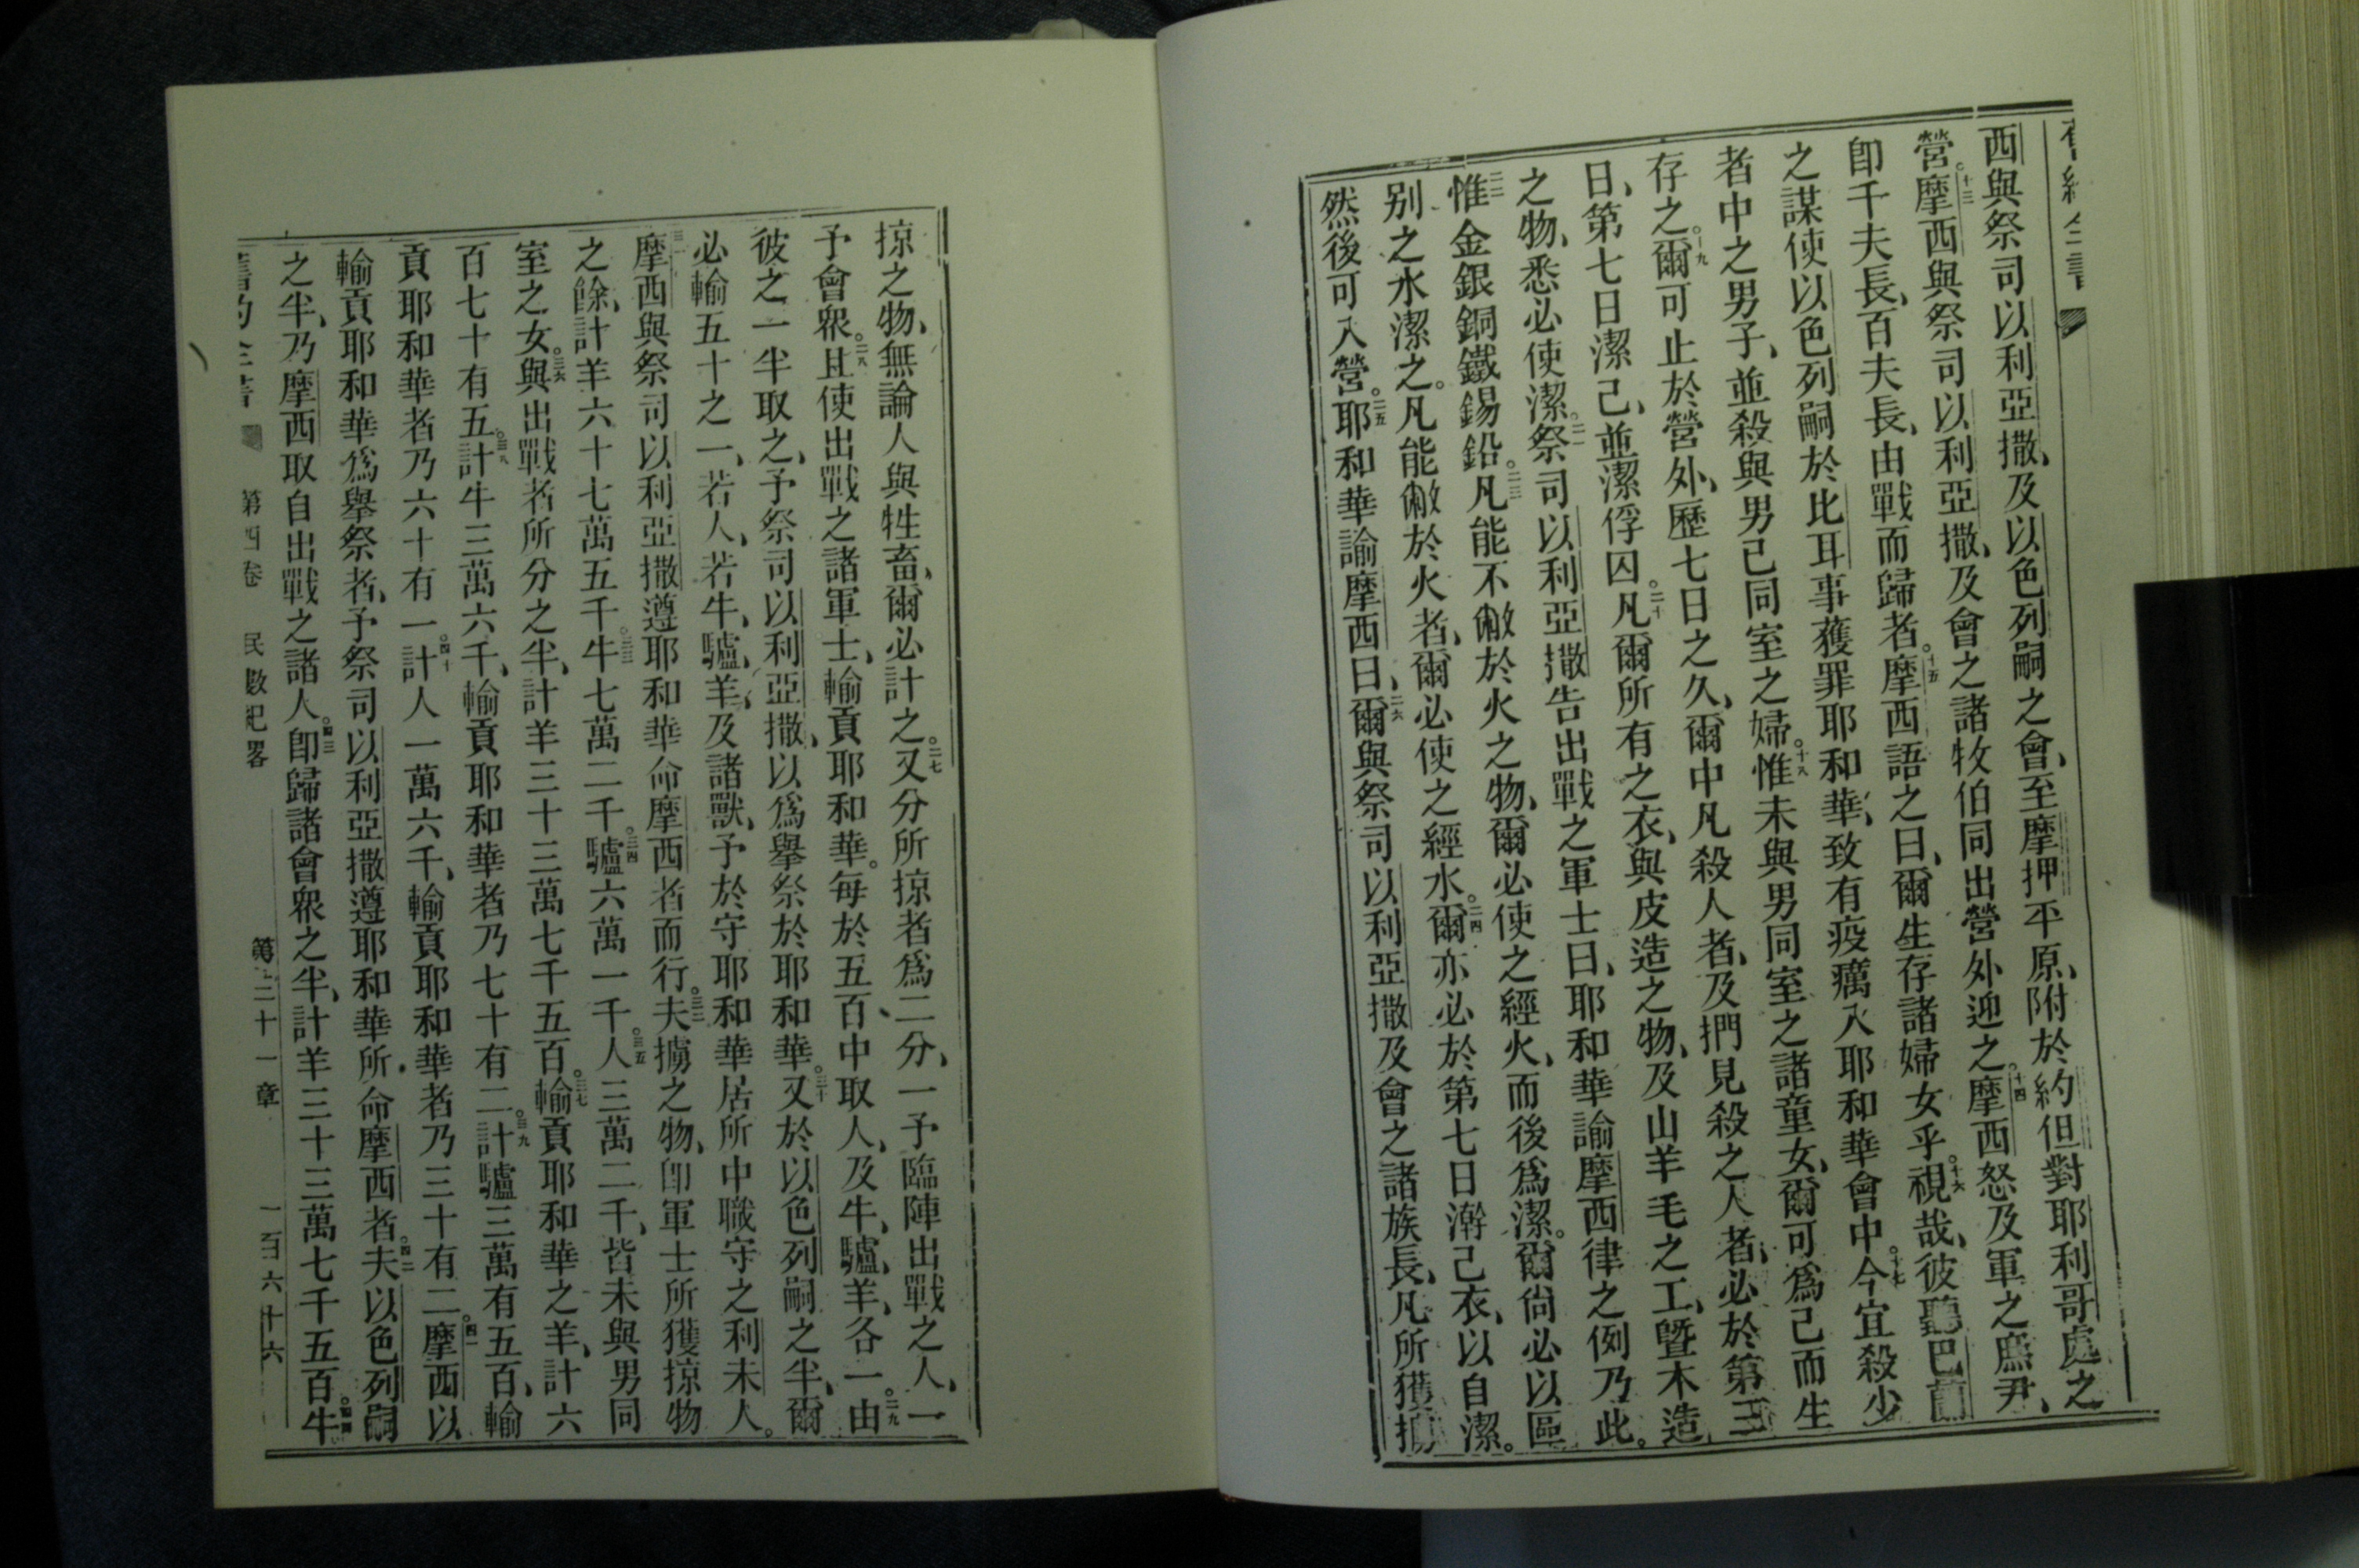 西與祭司以利亞撒、及以色列嗣之會、至摩押平原、附於約但對耶利哥處、之
營。十三摩西與祭司以利亞撒、及會之諸牧伯同出營外迎之。十四摩西怒及軍之庶尹、
卽千夫長、百夫長、由戰而歸者。十五摩西語之曰、爾生存諸婦女乎。十六視哉、彼聽巴蘭
之謀使以色列嗣於比耳事獲罪耶和華、致有疫癘入耶和華會中。十七今宜殺少
者中之男子、並殺與男已同室之婦。十八惟未與男同室之諸童女、爾可爲己而生
存之。十九爾可止於營外、歷七日之久、爾中凡殺人者、及捫見殺之人者、必於第三
日、第七日潔己、並潔俘囚。二十凡爾所有之衣、與皮造之物、及山羊毛之工、曁木造
之物、悉必使潔。二一祭司以利亞撒告出戰之軍士曰、耶和華諭摩西律之例乃此。
二二惟金銀銅鐵錫鉛。二三凡能不敝於火之物、爾必使之經火、而後爲潔。爾尙必以區
别之水潔之。凡能敝於火者、爾必使之經水。二四爾亦必於第七日澣己衣、以自潔。
然後可入營。二五耶和華諭摩西曰、二六爾與祭司以利亞撒及會之諸族長、凡所獲擄
掠之物、無論人與牲畜、爾必計之。二七又分所掠者爲二分、一予臨陣出戰之人、一
予會衆。二八且使出戰之諸軍士、輸貢耶和華。每於五百中取人、及牛、驢、羊、各一。二九由
彼之一半取之、予祭司以利亞撒、以爲舉祭於耶和華。三十又於以色列嗣之半、爾
必輸五十之一、若人、若牛、驢、羊、及諸獸、予於守耶和華居所中職守之利未人。
三一摩西與祭司以利亞撒遵耶和華命摩西者而行。三二夫擄之物、卽軍士所獲掠物
之餘、計羊六十七萬五千。三三牛七萬二千。三四驢六萬一千。三五人三萬二千、皆未與男同
室之女。三六與出戰者所分之半、計羊三十三萬七千五百。三七輸貢耶和華之羊、計六
百七十有五。三八計牛三萬六千、輸貢耶和華者乃七十有二。三九計驢三萬有五百、輸
貢耶和華者乃六十有一。四十計人一萬六千、輸貢耶和華者乃三十有二。四一摩西以
輸貢耶和華爲舉祭者、予祭司以利亞撒遵耶和華所命摩西者。四二夫以色列嗣
之半、乃摩西取自出戰之諸人。四三卽歸諸會衆之半、計羊三十三萬七千五百。四四牛
舊約全書 第四卷 民數紀畧 第三十一章 一百六十六